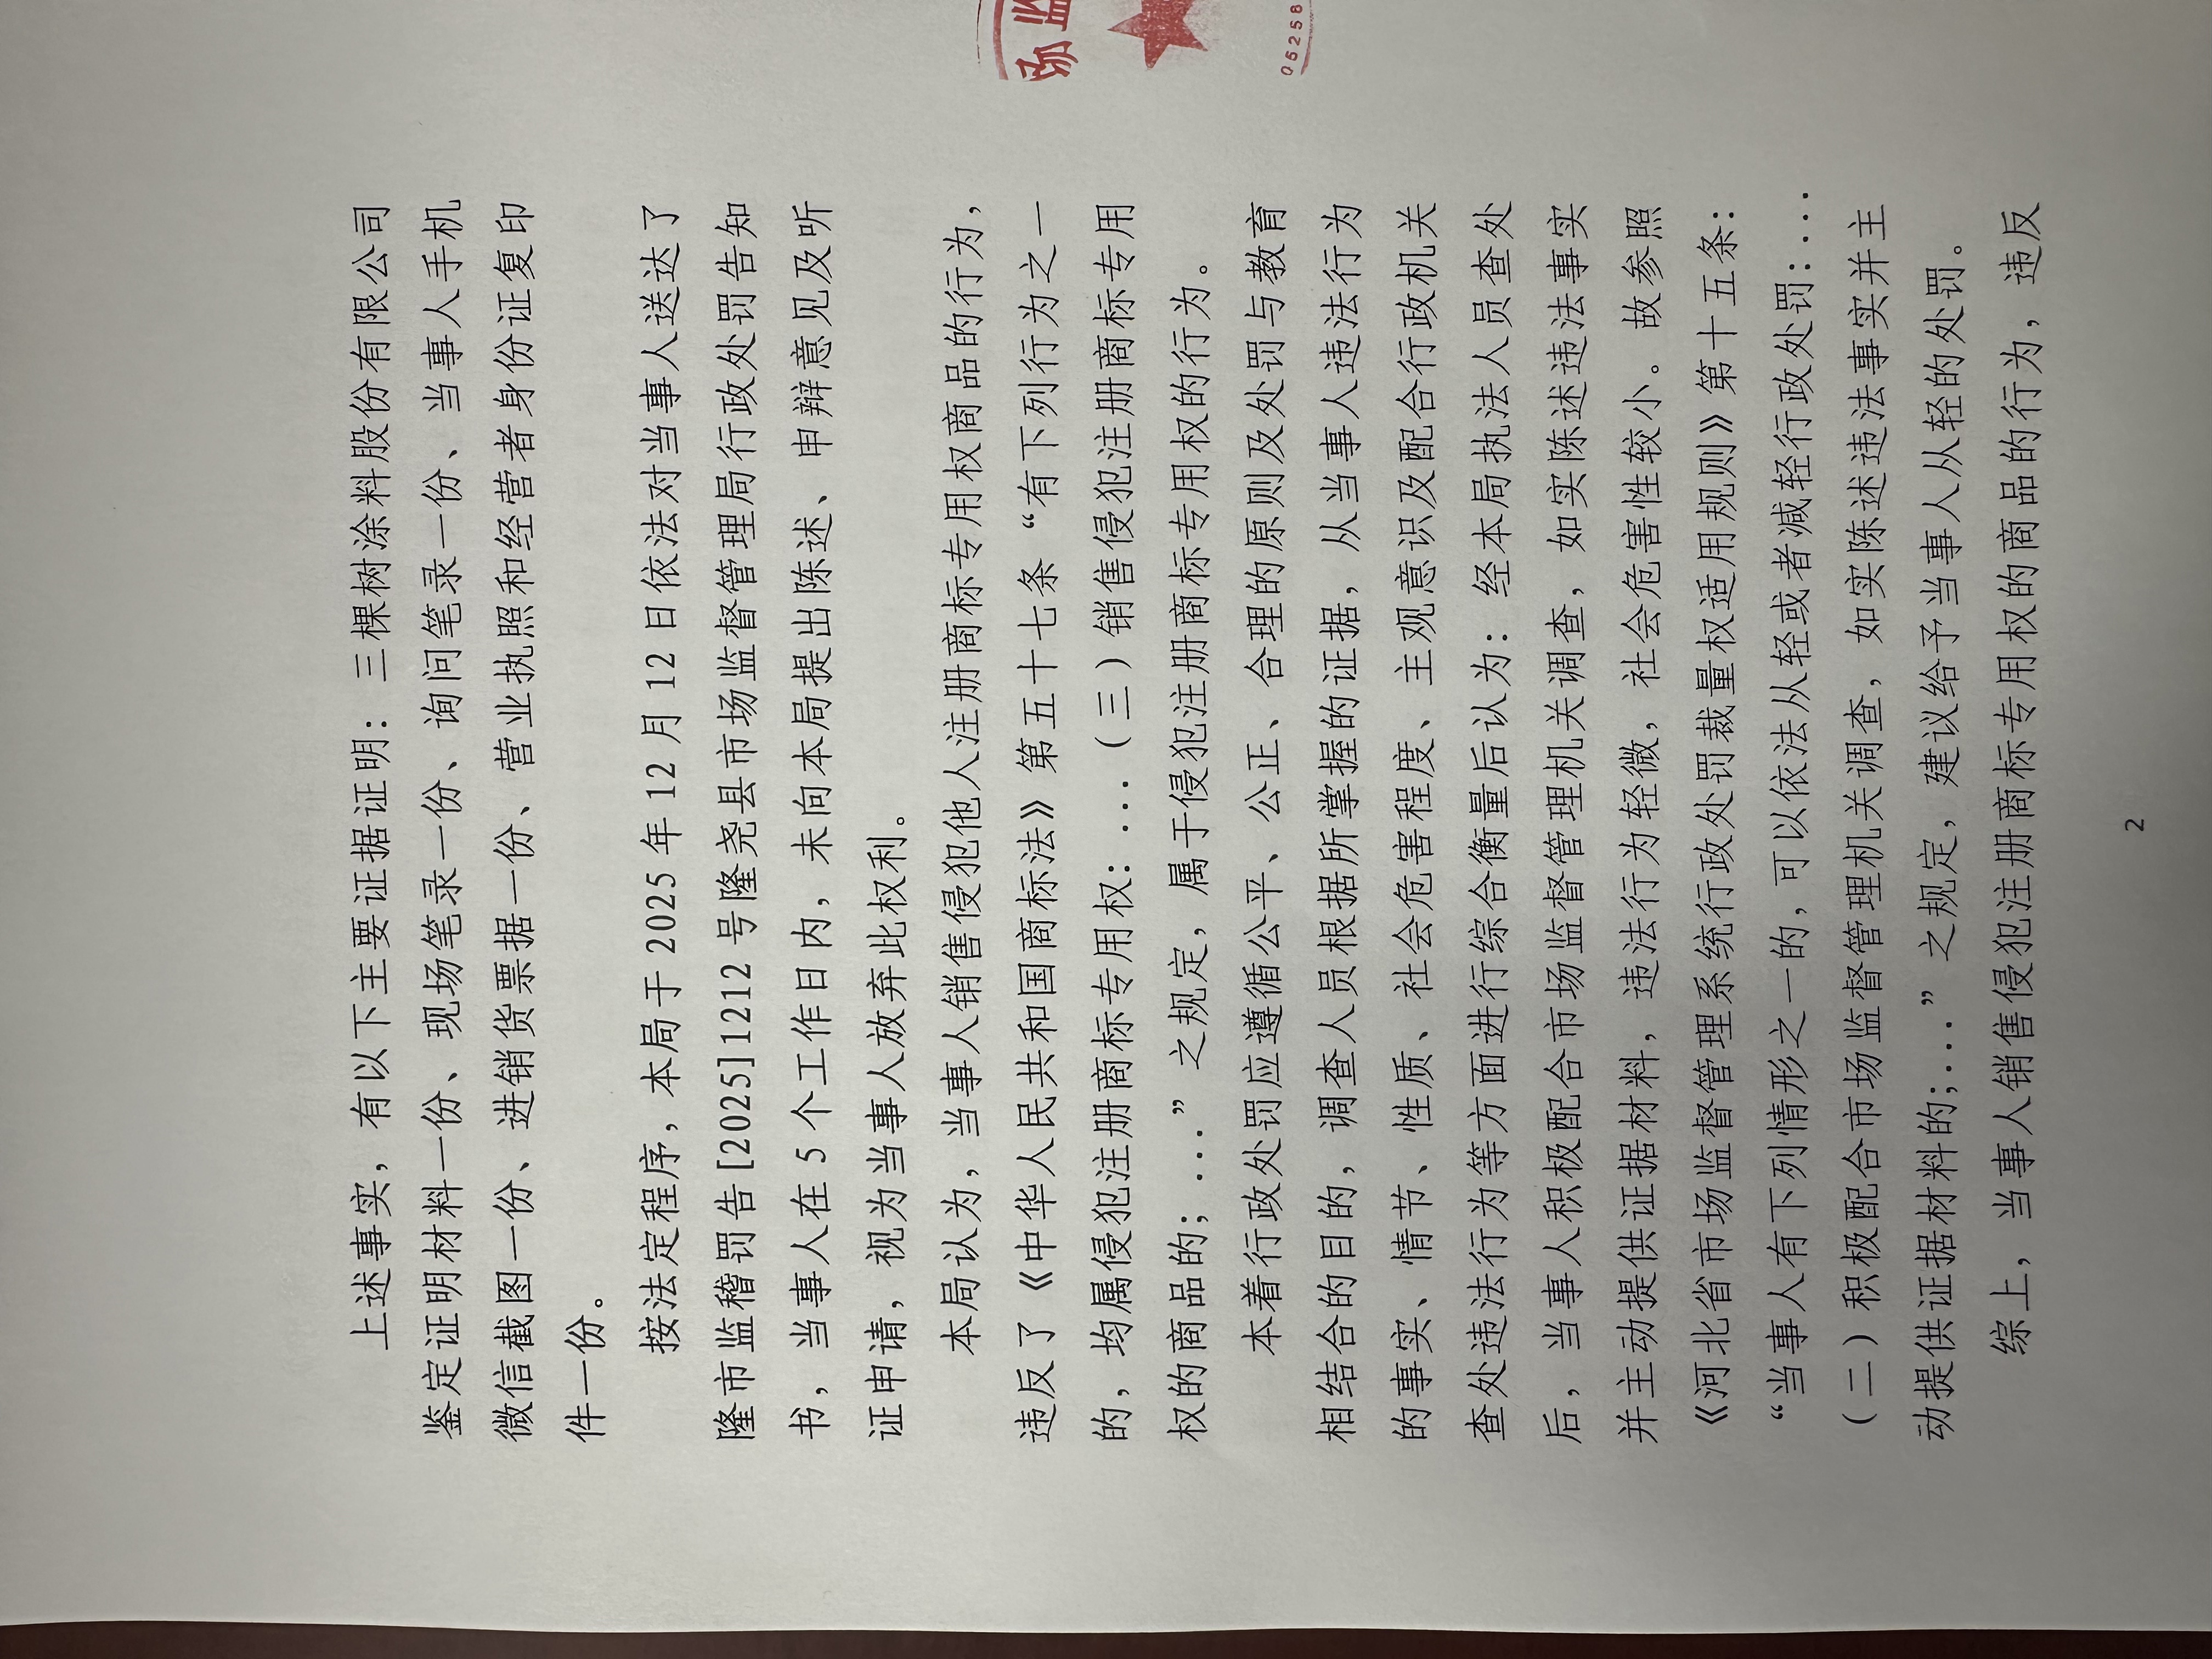 上述事实，有以下主要证据证明：三棵树涂料股份有限公司
鉴定证明材料一份、现场笔录一份、询问笔录一份、当事人手机
微信截图一份、进销货票据一份、营业执照和经营者身份证复印
件一份。
按法定程序，本局于2025年12月12日依法对当事人送达了
隆市监稽罚告[2025]1212号隆尧县市场监督管理局行政处罚告知
书，当事人在5个工作日内，未向本局提出陈述、申辩意见及听
证申请，视为当事人放弃此权利。
本局认为，当事人销售侵犯他人注册商标专用权商品的行为，
违反了《中华人民共和国商标法》第五十七条“有下列行为之一
的，均属侵犯注册商标专用权：...（三）销售侵犯注册商标专用
权的商品的；...”之规定，属于侵犯注册商标专用权的行为。
本着行政处罚应遵循公平、公正、合理的原则及处罚与教育
相结合的目的，调查人员根据所掌握的证据，从当事人违法行为
的事实、情节、性质、社会危害程度、主观意识及配合行政机关
查处违法行为等方面进行综合衡量后认为：经本局执法人员查处
后，当事人积极配合市场监督管理机关调查，如实陈述违法事实
并主动提供证据材料，违法行为轻微，社会危害性较小。故参照
《河北省市场监督管理系统行政处罚裁量权适用规则》第十五条：
“当事人有下列情形之一的，可以依法从轻或者减轻行政处罚：...
（二）积极配合市场监督管理机关调查，如实陈述违法事实并主
动提供证据材料的；...”之规定，建议给予当事人从轻的处罚。
综上，当事人销售侵犯注册商标专用权的商品的行为，违反
2
场监
05258